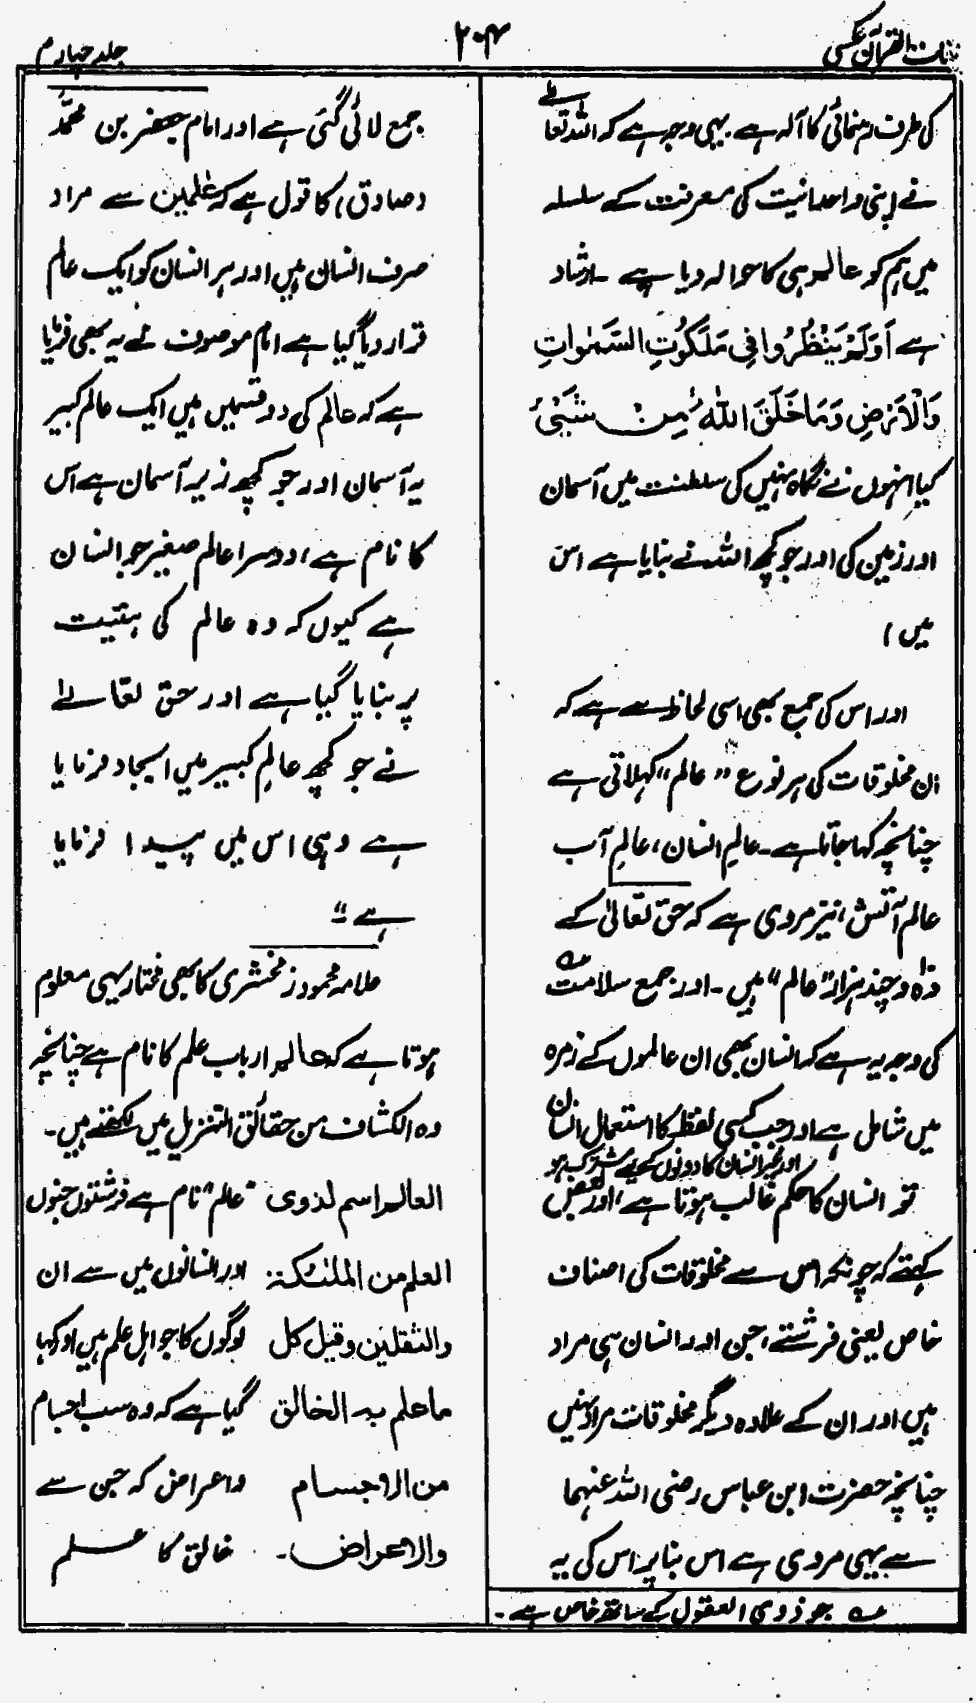 لغات القرآن عکسی
۲۰۴
جلد چہارم
کی طرف رہنمائی کا آلہ ہے یہی وجہ ہے کہ اللہ تعالیٰ
نے اپنی واحدانیت کی معرفت کے سلسلہ
میں ہم کو عالم ہی کا حوالہ دیا ہے ۔ ارشاد
ہے اَوَلَمْ یَنْظُرُوْا فِی مَلَکُوْتِ السَّمٰوَاتِ
وَالْاَرْضِ وَمَا خَلَقَ اللّٰہُ مِنْ شَیْءٍ
کیا انہوں نے نگاہ نہیں کی سلطنت میں آسمان
اور زمین کی اور جو کچھ اللہ نے بنایا ہے اس
میں )
اور اس کی جمع بھی اسی لحاظ سے ہے کہ
ان مخلوقات کی ہر نوع "عالم" کہلاتی ہے
چنانچہ کہا جاتا ہے ۔ عالمِ انسان، عالمِ آب
عالم آتش، نیز مروی ہے کہ حق تعالیٰ کے
دہ و چند ہزار "عالم" ہیں ۔ اور جمع سلامت ؎
کی وجہ یہ ہے کہ انسان بھی ان عالموں کے زمرہ
میں شامل ہے اور جب کسی لفظ کا استعمال انسان
اور غیر انسان کا دونوں کے لیے مشترک ہو
تو انسان کا حکم غالب ہوتا ہے، اور بعض
کہتے کہ چونکہ اس سے مخلوقات کی اصناف
خاص یعنی فرشتے، جن اور انسان ہی مراد
ہیں اور ان کے علاوہ دیگر مخلوقات مراد نہیں
چنانچہ حضرت ابن عباس رضی اللہ عنہما
سے یہی مروی ہے اس بنا پر اس کی یہ
؎ جو ذوی العقول کے ساتھ خاص ہے ۔
جمع لائی گئی ہے اور امام جعفر بن محمّد
(صادق) کا قول ہے کہ عٰلمین سے مراد
صرف انسان ہیں اور ہر انسان کو ایک عالم
قرار دیا گیا ہے امام موصوف نے یہ بھی فرمایا
ہے کہ عالم کی دو قسمیں ہیں ایک عالم کبیر
یہ آسمان اور جو کچھ زیر آسمان ہے اس
کا نام ہے، دوسرا عالم صغیر جو انسان
ہے کیوں کہ وہ عالم کی ہیئت
پر بنایا گیا ہے اور حق تعالےٰ
نے جو کچھ عالمِ کبیر میں ایجاد فرمایا
ہے وہی اس میں پیدا فرمایا
ہے "
علامہ محمود زمخشری کا بھی مختار یہی معلوم
ہوتا ہے کہ عالم ارباب علم کا نام ہے چنانچہ
وہ الکشاف من حقائق التنزیل میں لکھتے ہیں ۔
العالم اسم لذوی "عالم" نام ہے فرشتوں جنوں
العلم من الملئکۃ اور انسانوں میں سے ان
والثقلین وقیل کل لوگوں کا جو اہل علم ہیں اور کہا
ما علم بہ الخالق گیا ہے کہ وہ سب اجسام
من الاجسام واعراض کہ جن سے
والاعراض ۔ خالق کا علم